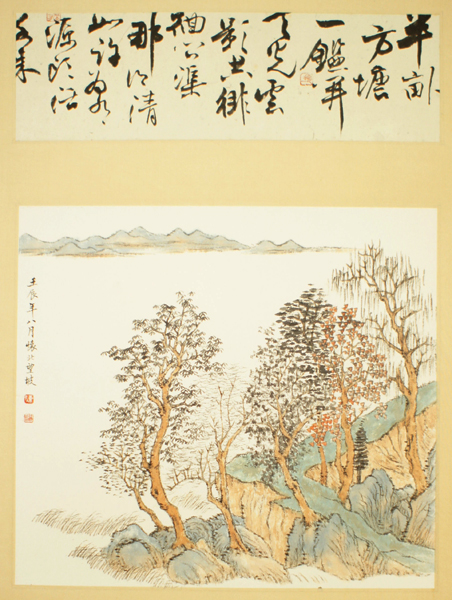 半畝
方塘
一鑑開
天光雲
影共徘
徊問渠
那得清
如許為有
源頭活
水來
壬辰年八月